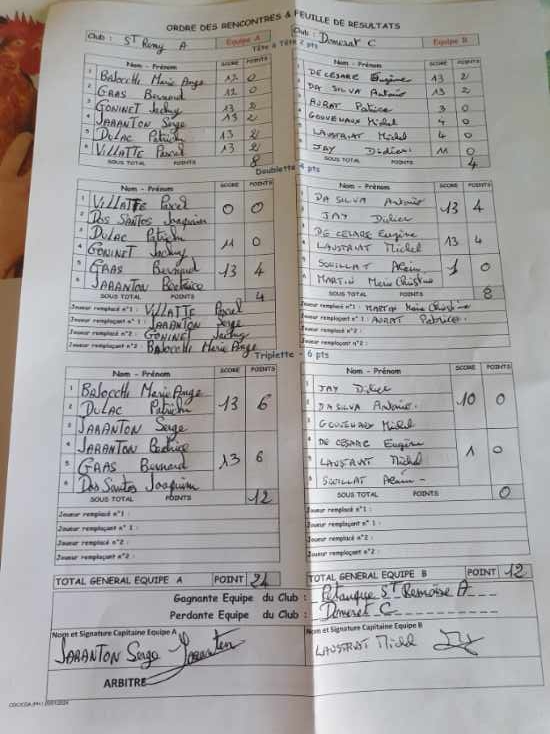 ORDRE DES RENCONTRES & FEUILLE DE RESULTATS
Club : St Remy A Equipe A Club : Domerat C Equipe B
Tête à Tête 2 pts
Nom - Prénom SCORE POINTS Nom - Prénom SCORE POINTS
1 Balocchi Marie Ange 12 0 1 DE CESARE Eugène 13 2
2 GRAS Bernard 11 0 2 DA SILVA Antonio 13 2
3 GONINET Jacky 13 2 3 AURAT Patrice 3 0
4 JARANTON Serge 13 2 4 GOUVEHAUX Michel 4 0
5 DULAC Patrick 13 2 5 LAUSTRIAT Michel 4 0
6 VILLATTE Pascal 13 2 6 JAY Didier 11 0
SOUS TOTAL POINTS 8 SOUS TOTAL POINTS 4
Doublette 4 pts
Nom - Prénom SCORE POINTS Nom - Prénom SCORE POINTS
1 VILLATTE Pascal 0 0 1 DA SILVA Antonio 13 4
2 Dos Santos Joaquim 2 JAY Didier
3 DULAC Patrick 11 0 3 DE CESARE Eugène 13 4
4 GONINET Jacky 4 LAUSTRIAT Michel
5 GRAS Bernard 13 4 5 SOUILLAT Alain 0
6 JARANTON Beatrice 6 MARTIN Marie Christine
SOUS TOTAL POINTS 4 SOUS TOTAL POINTS 8
Joueur remplacé n°1 : VILLATTE Pascal Joueur remplacé n°1 : MARTIN Marie Christine
Joueur remplaçant n° 1 : JARANTON Serge Joueur remplaçant n° 1 : AURAT Patrice.
Joueur remplacé n°2 : GONINET Jacky Joueur remplacé n°2 :
Joueur remplaçant n°2 Balocchi Marie Ange Joueur remplaçant n°2 :
Triplette - 6 pts
Nom - Prénom SCORE POINTS Nom - Prénom SCORE POINTS
1 Balocchi Marie Ange 13 6 1 JAY Didier 10 0
2 DULAC Patrick 2 DA SILVA Antonio.
3 JARANTON Serge 3 GOUVEHAUX Michel
4 JARANTON Beatrice 13 6 4 DE CESARE Eugène 1 0
5 GRAS Bernard 5 LAUSTRIAT Michel
6 Dos Santos Joaquim 6 SOUILLAT Alain -
SOUS TOTAL POINTS 12 SOUS TOTAL POINTS 0
Joueur remplacé n°1 : Joueur remplacé n°1 :
Joueur remplaçant n°1 : Joueur remplaçant n° 1 :
Joueur remplacé n°2 : Joueur remplacé n°2 :
Joueur remplaçant n°2 : Joueur remplaçant n°2 :
TOTAL GENERAL EQUIPE A POINT 24 TOTAL GENERAL EQUIPE B POINT 12
Gagnante Equipe du Club : Petanque St Remoise A
Perdante Equipe du Club : Domerat C
Nom et Signature Capitaine Equipe A Nom et Signature Capitaine Equipe B
JARANTON Serge Jaranton LAUSTRIAT Michel
ARBITRE